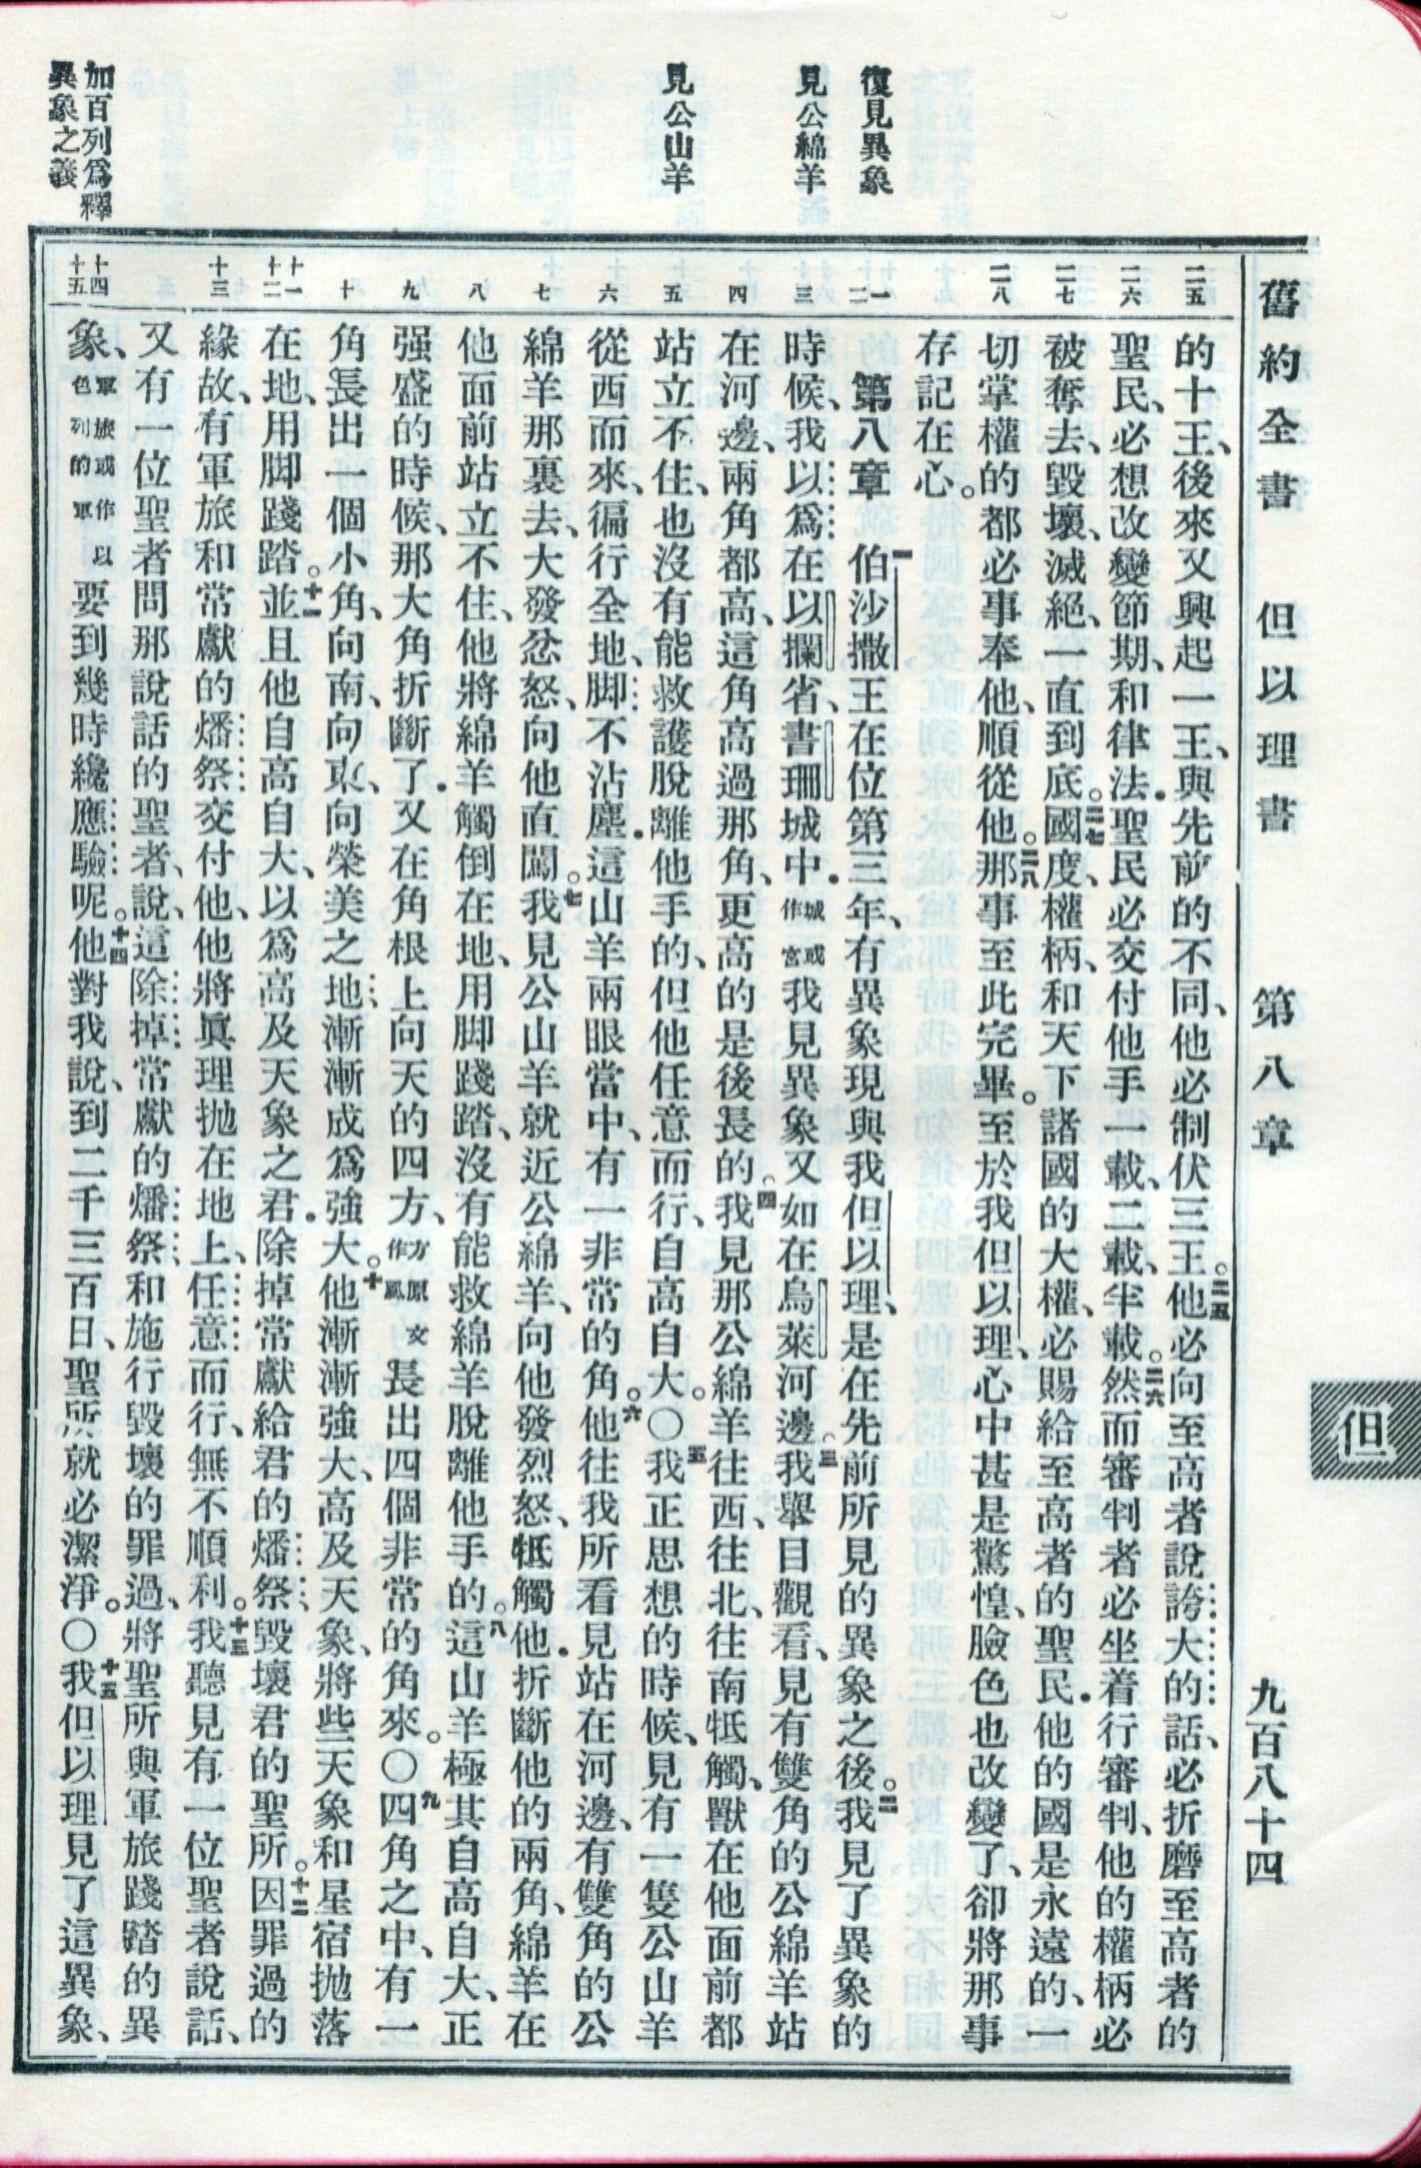 舊約全書　但以理書　第八章　九百八十四
但
復見異象
見公綿羊
見公山羊
加百列爲釋
異象之義
二五
二六
二七
二八
一
二
三
四
五
六
七
八
九
十
十一
十二
十三
十四
十五
的十王、後來又興起一王、與先前的不同、他必制伏三王。二五他必向至高者說誇大的話、必折磨至高者的
聖民、必想改變節期、和律法．聖民必交付他手一載、二載、半載。二六然而審判者必坐着行審判、他的權柄必
被奪去、毀壞、滅絕、一直到底。二七國度、權柄、和天下諸國的大權、必賜給至高者的聖民．他的國是永遠的、一
切掌權的都必事奉他、順從他。二八那事至此完畢。至於我但以理、心中甚是驚惶、臉色也改變了、卻將那事
存記在心。
第八章　一伯沙撒王在位第三年、有異象現與我但以理、是在先前所見的異象之後。二我見了異象的
時候、我以爲在以攔省、書珊城中．城或作宮我見異象又如在烏萊河邊。三我舉目觀看、見有雙角的公綿羊站
在河邊、兩角都高、這角高過那角、更高的是後長的。四我見那公綿羊往西、往北、往南牴觸、獸在他面前都
站立不住、也沒有能救護脫離他手的、但他任意而行、自高自大。○五我正思想的時候、見有一隻公山羊
從西而來、徧行全地、脚不沾塵．這山羊兩眼當中、有一非常的角。六他往我所看見站在河邊、有雙角的公
綿羊那裏去、大發忿怒、向他直闖。七我見公山羊就近公綿羊、向他發烈怒、牴觸他．折斷他的兩角、綿羊在
他面前站立不住、他將綿羊觸倒在地、用脚踐踏、沒有能救綿羊脫離他手的。八這山羊極其自高自大、正
强盛的時候、那大角折斷了．又在角根上向天的四方、方原文作風長出四個非常的角來。○九四角之中、有一
角長出一個小角、向南、向東、向榮美之地、漸漸成爲強大。十他漸漸強大、高及天象、將些天象和星宿抛落
在地、用脚踐踏。十一並且他自高自大、以爲高及天象之君．除掉常獻給君的燔祭、毀壞君的聖所。十二因罪過的
緣故、有軍旅和常獻的燔祭交付他、他將眞理抛在地上、任意而行、無不順利。十三我聽見有一位聖者說話、
又有一位聖者問那說話的聖者、說、這除掉常獻的燔祭和施行毀壞的罪過、將聖所與軍旅踐踏的異
象、軍旅或作以色列的軍要到幾時纔應驗呢。十四他對我說、到二千三百日、聖所就必潔淨。○十五我但以理見了這異象、